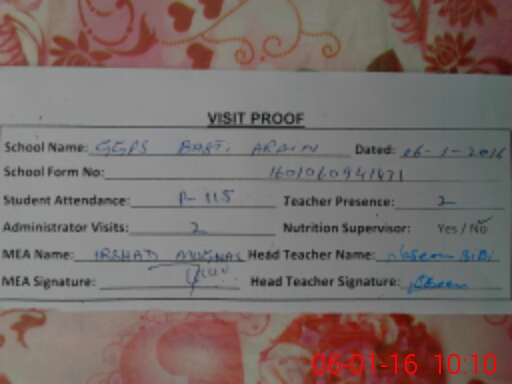 VISIT PROOF
School Name: GGPS BASTI ARAIN Dated: 06-1-2016
School Form No: 1601060941431
Student Attendance: P-115 Teacher Presence: 2
Administrator Visits: 2 Nutrition Supervisor: Yes / No
MEA Name: IRSHAD Head Teacher Name: BiBi
MEA Signature: Head Teacher Signature:
06-01-16 10:10